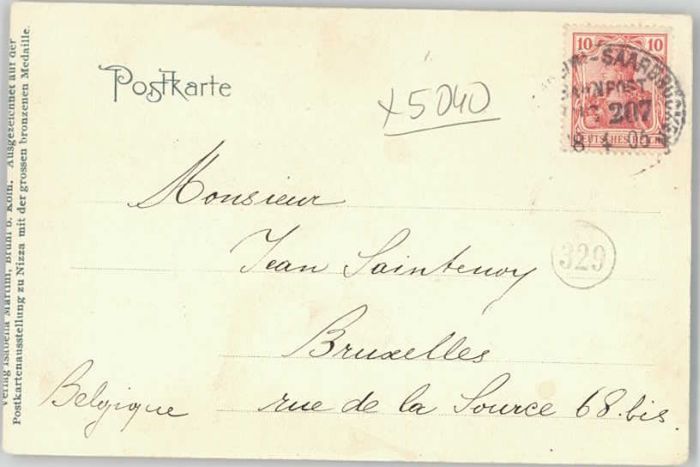 Postkarte
x5040
10 10
-SAARBRÜCKEN
BAHNPOST
ZUG 207
8 4 05
DEUTSCHES REICH
Monsieur
Jean Saintenoy
329
Bruxelles
Belgique rue de la Source 68 bis.
Verlag Isabella Martini, Brühl b. Köln. Ausgezeichnet auf der
Postkartenausstellung zu Nizza mit der grossen bronzenen Medaille.